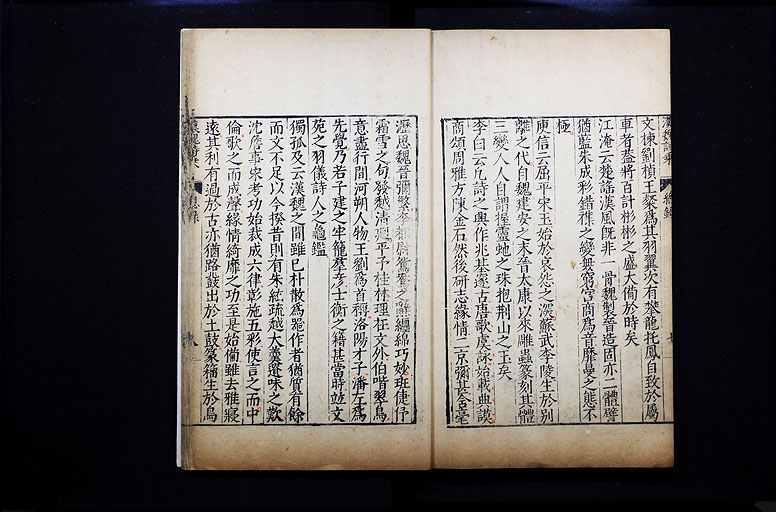 文棟劉楨王粲爲其羽翼次有攀龍托鳳自致於屬
車者蓋將百計彬彬之盛大備於時矣
江淹云楚謠漢風既非一骨魏製晉造固亦二體譬
猶藍朱成彩錯雜之變無窮宮商爲音靡曼之態不
極
庾信云屈平宋玉始於哀怨之深蘇武李陵生於別
離之代自魏建安之末晉太康以來雕蟲篆刻其體
三變人人自謂握靈蛇之珠抱荊山之玉矣
李白云凡詩之興作兆基邃古唐歌虞詠始載典謨
商頌周雅方陳金石然後研志緣情二京彌甚含毫
瀝思魏晉彌繁李都尉鴛鴦之辭纏綿巧妙班倢伃
霜雪之句發越清迥平子桂林理在文外伯喈翠鳥
意盡行間河朔人物王劉爲首稱洛陽才子潘左爲
先覺乃若子建之牢籠羣彥士衡之籍甚當時竝文
苑之羽儀詩人之龜鑑
獨孤及云漢魏之間雖已朴散爲器作者猶質有餘
而文不足以今揆昔則有朱絃疏越大羹遺味之歎
沈詹事宋考功始裁成六律彰施五彩使言之而中
倫歌之而成聲緣情綺靡之功至是始備雖去雅寖
遠其利有過於古亦猶路鼗出於土鼓篆籀生於鳥